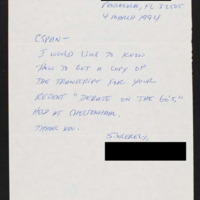 PENSACOLA, FL 32505
4 MARCH 1994
CSPAN-
I WOULD LIKE TO KNOW
HOW TO GET A COPY OF
THE TRANSCRIPT FOR YOUR
RECENT "DEBATE ON THE 60'S,"
HELD AT CHELTENHAM.
THANK YOU.
SINCERELY,